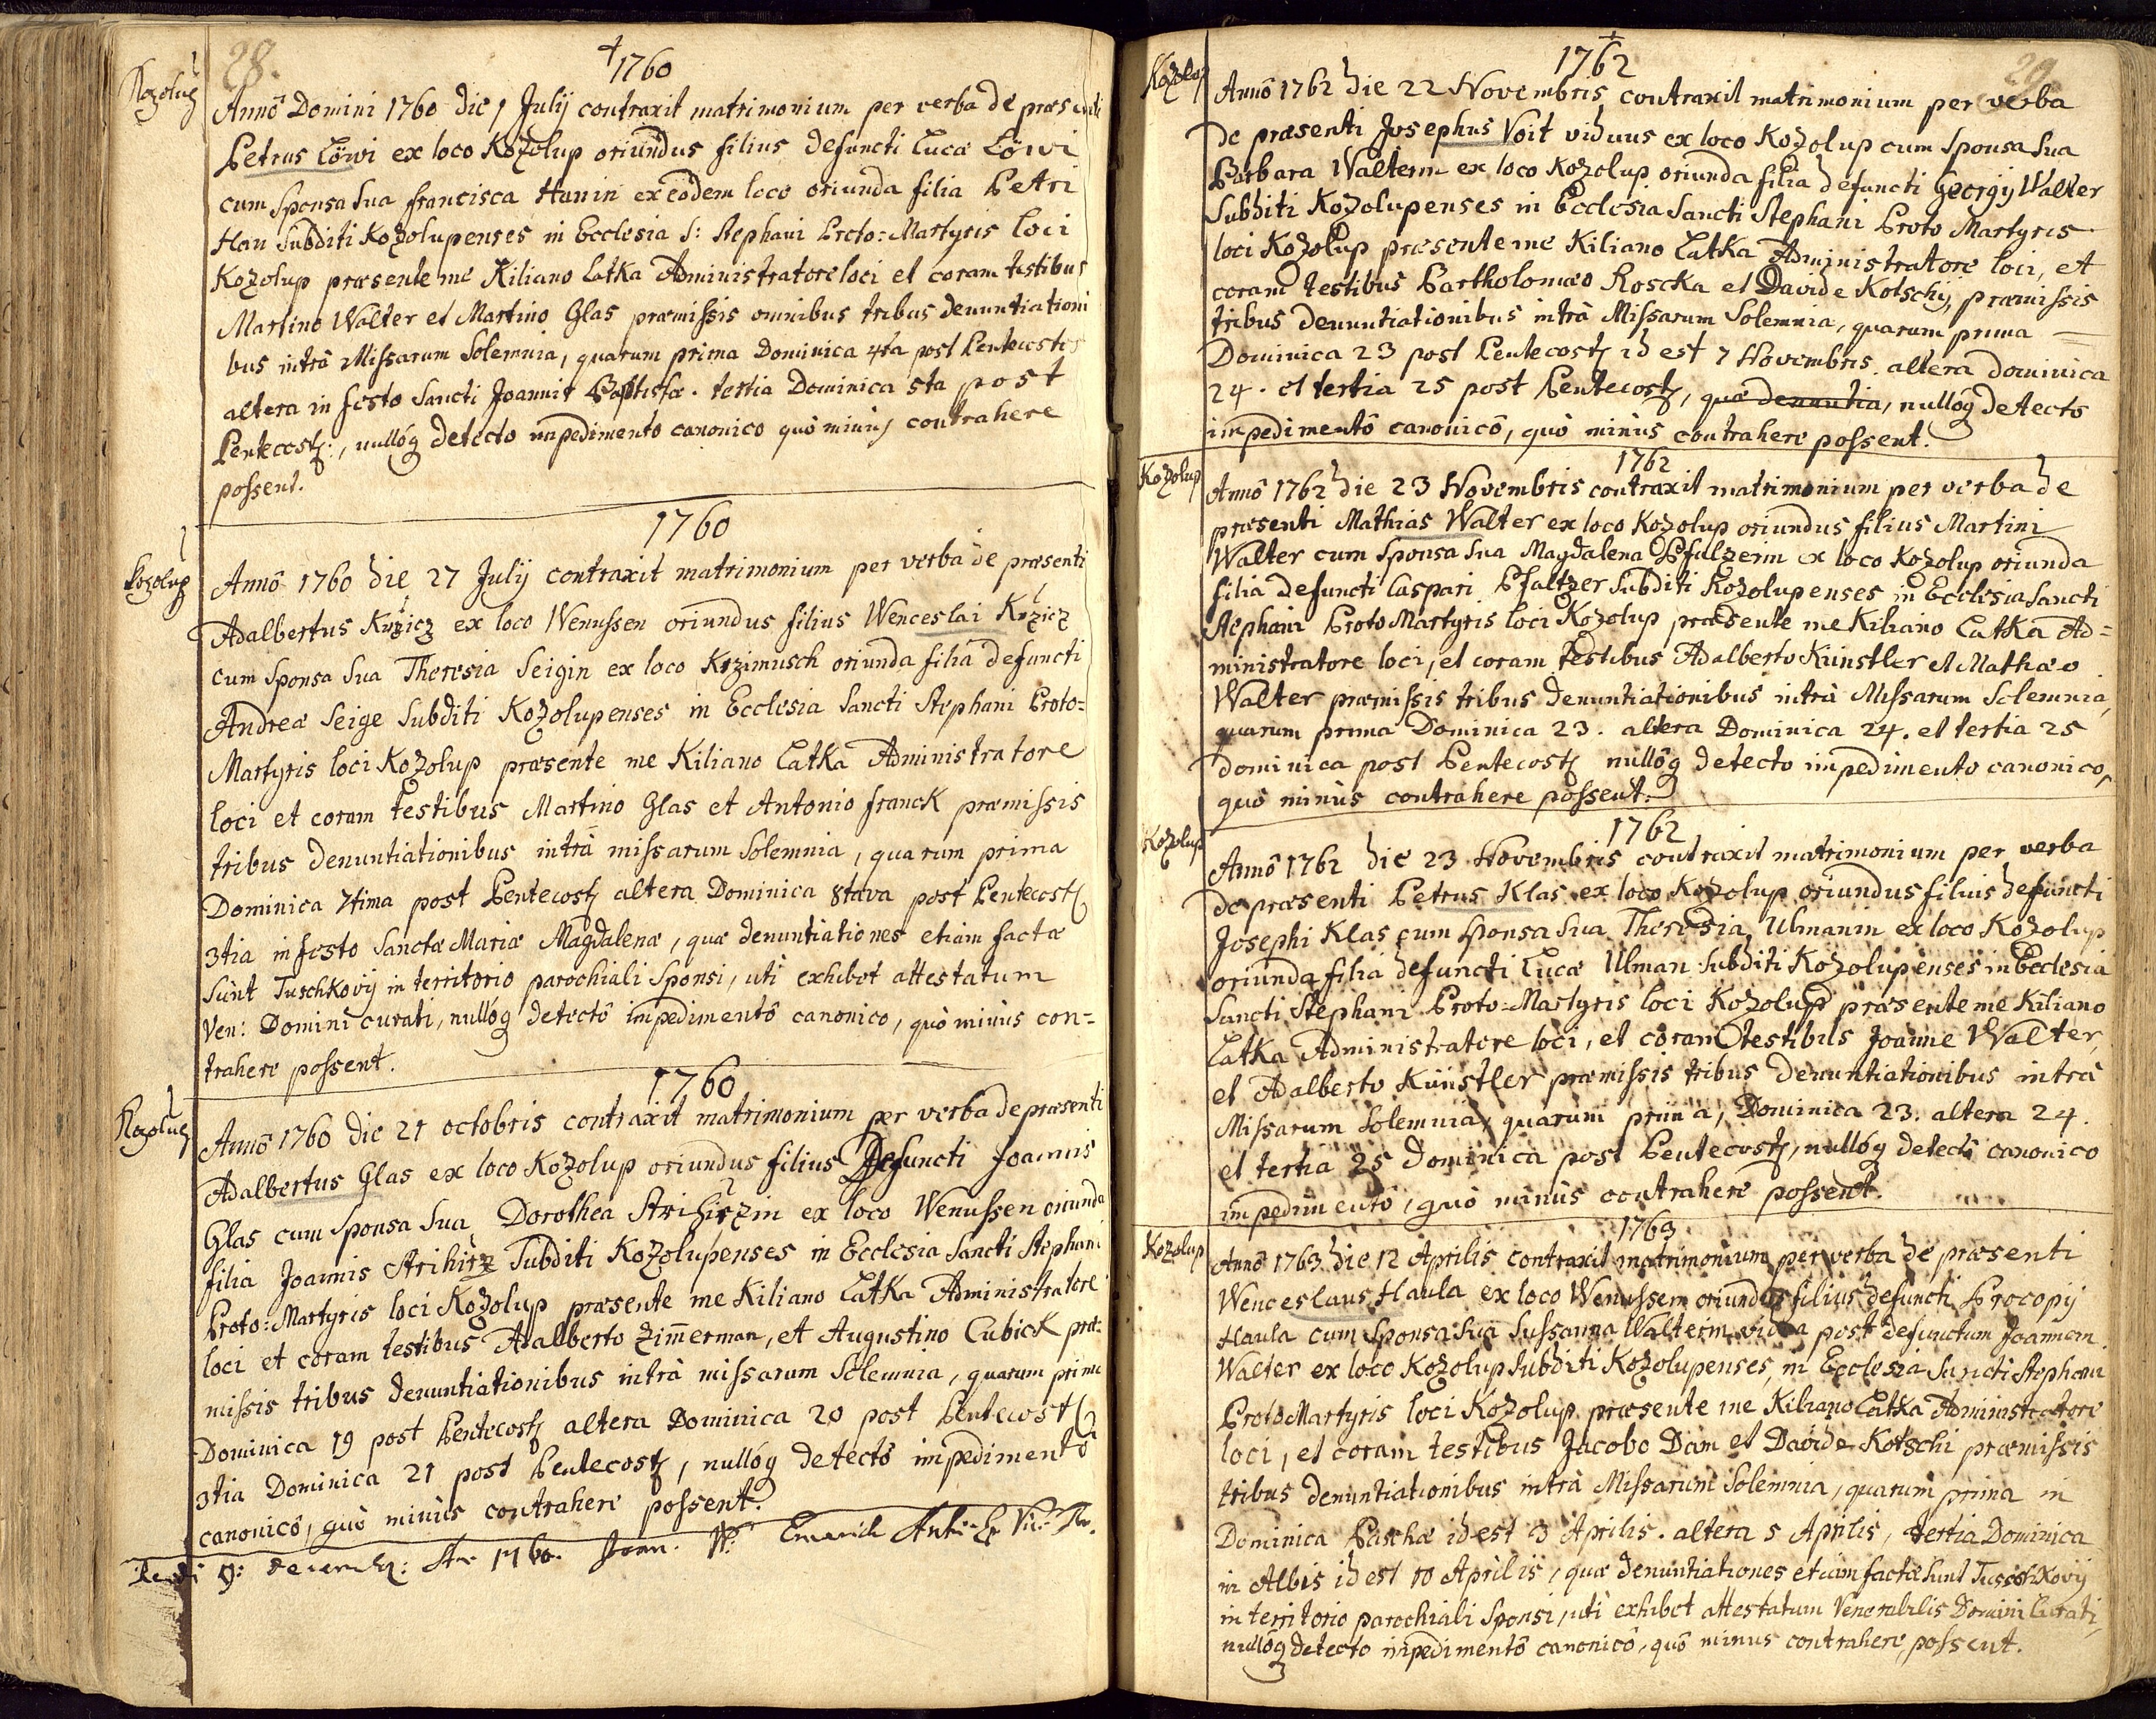 28.
+
1760
Kozolup
Annô Domini 1760 die 1 Julij contraxit matrimonium per verba de præsenti
Petrus Löwi ex loco Kozolup oriundus filius defuncti Lucæ Löwi
cum Sponsa Sua francisca Hanin ex eôdem loco oriunda filia Petri
Han Subditi Kozolupenses in Ecclesia S: Stephani Proto=Martyris loci
Kozolup præsente me Kiliano Latka Administratore loci et coram testibus
Martino Walter et Martino Glas præmissis omnibus tribus denuntiationi
bus intrà Missarum Solemnia, quarum prima Dominica 4ta post Pentecostes
altera in festo Sancti Joannis Baptistæ. tertia Dominica 5ta post
Pentecost:, nullóq detecto impedimento canonico quò minus contrahere
possent.
1760
Kozolup
Annô 1760 die 27 Julij contraxit matrimonium per verba de præsenti
Adalbertus Krzicz ex loco Wenussen oriundus filius Wenceslai Krzicz
cum Sponsa Sua Theresia Seigin ex loco Krzimusch oriunda filia defuncti
Andreæ Seige Subditi Kozolupenses in Ecclesia Sancti Stephani Proto=
Martyris loci Kozolup præsente me Kiliano Latka Administratore
loci et coram testibus Martino Glas et Antonio franck præmissis
tribus denuntiationibus intrà missarum Solemnia, quarum prima
Dominica 7tima post Pentecost altera Dominica 8tava post Pentecost
3tia in festo Sanctæ Mariæ Magdalenæ, quæ denuntiationes etiam factæ
Sunt Tuschkovij in territorio parochiali Sponsi, uti exhibet attestatum
Ven: Domini curati, nullóq detectô impedimentô canonico, quò minùs con=
trahere possent.
1760
Kozolup
Annô 1760 die 21 octobris contraxit matrimonium per verba de præsenti
Adalbertus Glas ex loco Kozolup oriundus filius Defuncti Joannis
Glas cum Sponsa Sua Dorothea Strihirzin ex loco Wenussen oriunda
filia Joannis Strihirz Subditi Kozolupenses in Ecclesia Sancti Stephani
Proto=Martyris loci Kozolup præsente me Kiliano Latka Administratore
loci et coram testibus Adalberto Zimmerman, et Augustino Cubick præ=
missis tribus denuntiationibus intrà missarum Solemnia, quarum prima
Dominica 19 post Pentecost altera Dominica 20 post Pentecost
3tia Dominica 21 post Pentecost, nullóq detectô impedimentô
canonicô, quò minùs contrahere possent.
9: Decemb: 1760. Joan.
29
+
1762
Kozolup
Annô 1762 die 22 Novembris contraxit matrimonium per verba
de præsenti Josephus Voit viduus ex loco Kozolup cum Sponsa Sua
Barbara Walterin ex loco Kozolup oriunda filia defuncti Georgij Walter
Subditi Kozolupenses in Ecclesia Sancti Stephani Proto Martyris
loci Kozolup præsente me Kiliano Latka Administratore loci, et
coram testibus Bartholomæo Roscka et Davide Kotschij, præmissis
tribus denuntiationibus intrà Missarum Solemnia, quarum prima =
Dominica 23 post Pentecost id est 7 Novembris. altera dominica
24. et tertia 25 post Pentecost, quæ denuntia, nullóq detectô
impedimentô canonicô, quò minùs contrahere possent.
1762
Kozolup
Annô 1762 die 23 Novembris contraxit matrimonium per verba de
præsenti Mathias Walter ex loco Kozolup oriundus filius Martini
Walter cum Sponsa Sua Magdalena Pfalzerin ex loco Kozolup oriunda
filia defuncti Caspari Pfaltzer Subditi Kozolupenses in Ecclesia Sancti
Stephani Proto Martyris loci Kozolup præsente me Kiliano Latka Ad=
ministratore loci, et coram testibus Adalberto Künstler et Mathæo
Walter præmissis tribus denuntiationibus intrà Missarum Solemnia,
quarum prima Dominica 23. altera Dominica 24. et tertia 25
dominica post Pentecost nullôq detecto impedimento canonico,
quò minùs contrahere possent.
1762
Kozolup
Annô 1762 die 23 Novembris contraxit matrimonium per verba
de præsenti Petrus Klas ex loco Kozolup oriundus filius defuncti
Josephi Klas cum Sponsa Sua Theresia Ulmanin ex loco Kozolup
oriunda filia defuncti Lucæ Ulman Subditi Kozolupenses in Ecclesia
Sancti Stephani Proto=Martyris loci Kozolup præsente me Kiliano
Latka Administratore loci, et coram testibus Joanne Walter,
et Adalberto Künstler præmissis tribus denuntiationibus intrà
Missarum Solemnia, quarum prima, Dominica 23. altera 24.
et tertia 25 Dominica post Pentecost, nullóq detectô canonico
impedimentô, quò minùs contrahere possent.
1763
Kozolup
Annô 1763 die 12 Aprilis contraxit matrimonium per verba de præsenti
Wenceslaus Haula ex loco Wenussen oriundus filius defuncti Procopij
Haula cum Sponsa Sua Sussanna Walterin vidua post defunctum Joannem
Walter ex loco Kozolup Subditi Kozolupenses, in Ecclesia Sancti Stephani
Proto Martyris loci Kozolup præsente me Kiliano Latka Administratore
loci, et coram testibus Jacobo Dam et Davide Kotschi præmissis
tribus denuntiationibus intrà Missarum Solemnia, quarum prima in
Dominica Paschæ id est 3 Aprilis. altera 5 Aprilis, tertia Dominica
in Albis id est 10 Aprilis, quæ denuntiationes etiam factæ Sunt Tuschkovij
in territorio parochiali Sponsi, uti exhibet attestatum Venerabilis Domini Curati,
nullôq detecto impedimentô canonicô, quô minus contrahere possent.